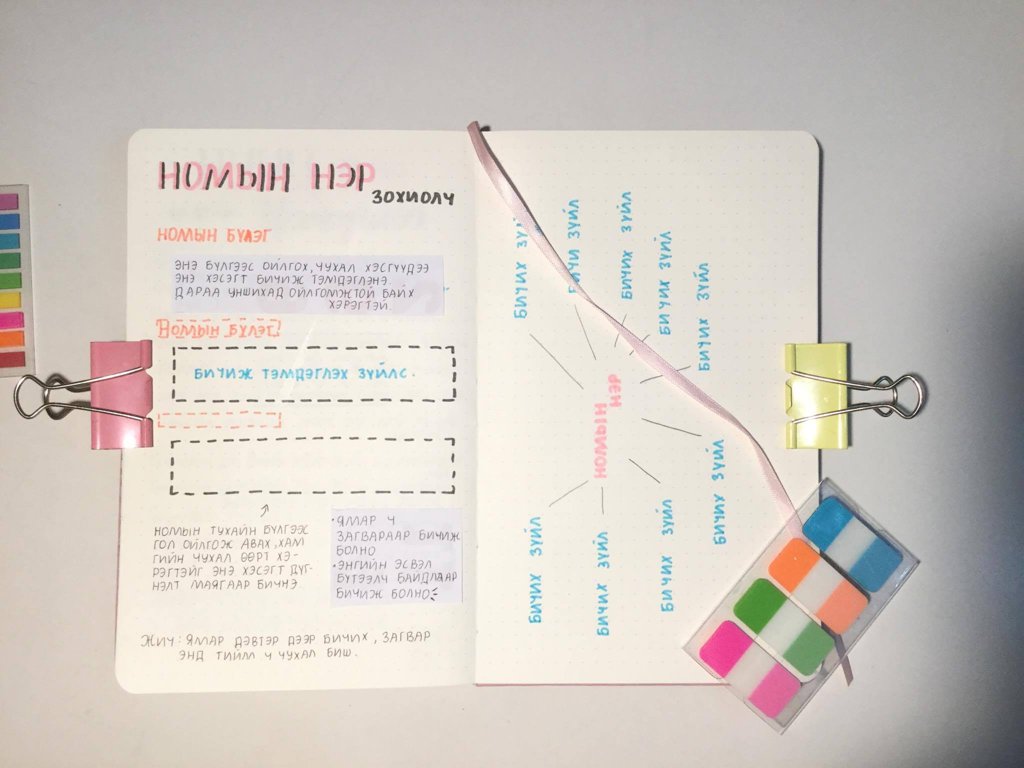 НОМЫН НЭР
ЗОХИОЛЧ
НОМЫН БҮЛЭГ
ЭНЭ БҮЛГЭЭС ОЙЛГОХ, ЧУХАЛ ХЭСГҮҮДЭЭ
ЭНЭ ХЭСЭГТ БИЧИЖ ТЭМДЭГЛЭНЭ.
ДАРАА УНШИХАД ОЙЛГОМЖТОЙ БАЙХ
ХЭРЭГТЭЙ.
НОМЫН БҮЛЭГ
БИЧИЖ ТЭМДЭГЛЭХ ЗҮЙЛС.
НОМЫН ТУХАЙН БҮЛГЭЭС
ГОЛ ОЙЛГОЖ АВАХ, ХАМ
ГИЙН ЧУХАЛ ӨӨРТ ХЭ-
РЭГТЭЙГ ЭНЭ ХЭСЭГТ ДҮГ-
НЭЛТ МАЯГААР БИЧНЭ.
·ЯМАР Ч
ЗАГВАРААР БИЧИЖ
БОЛНО
·ЭНГИЙН ЭСВЭЛ
БҮТЭЭЛЧ БАЙДЛААР
БИЧИЖ БОЛНО
ЖИЧ: ЯМАР ДЭВТЭР ДЭЭР БИЧИХ, ЗАГВАР
ЭНД ТИЙМ Ч ЧУХАЛ БИШ.
БИЧИХ
БИЧИ ЗҮЙЛ
БИЧИХ ЗҮЙЛ
БИЧИХ ЗҮЙЛ
БИЧИХ ЗҮЙЛ
НОМЫН
НЭР
БИЧИХ ЗҮЙЛ
БИЧИХ ЗҮЙЛ
БИЧИХ ЗҮЙЛ
БИЧИХ ЗҮЙЛ